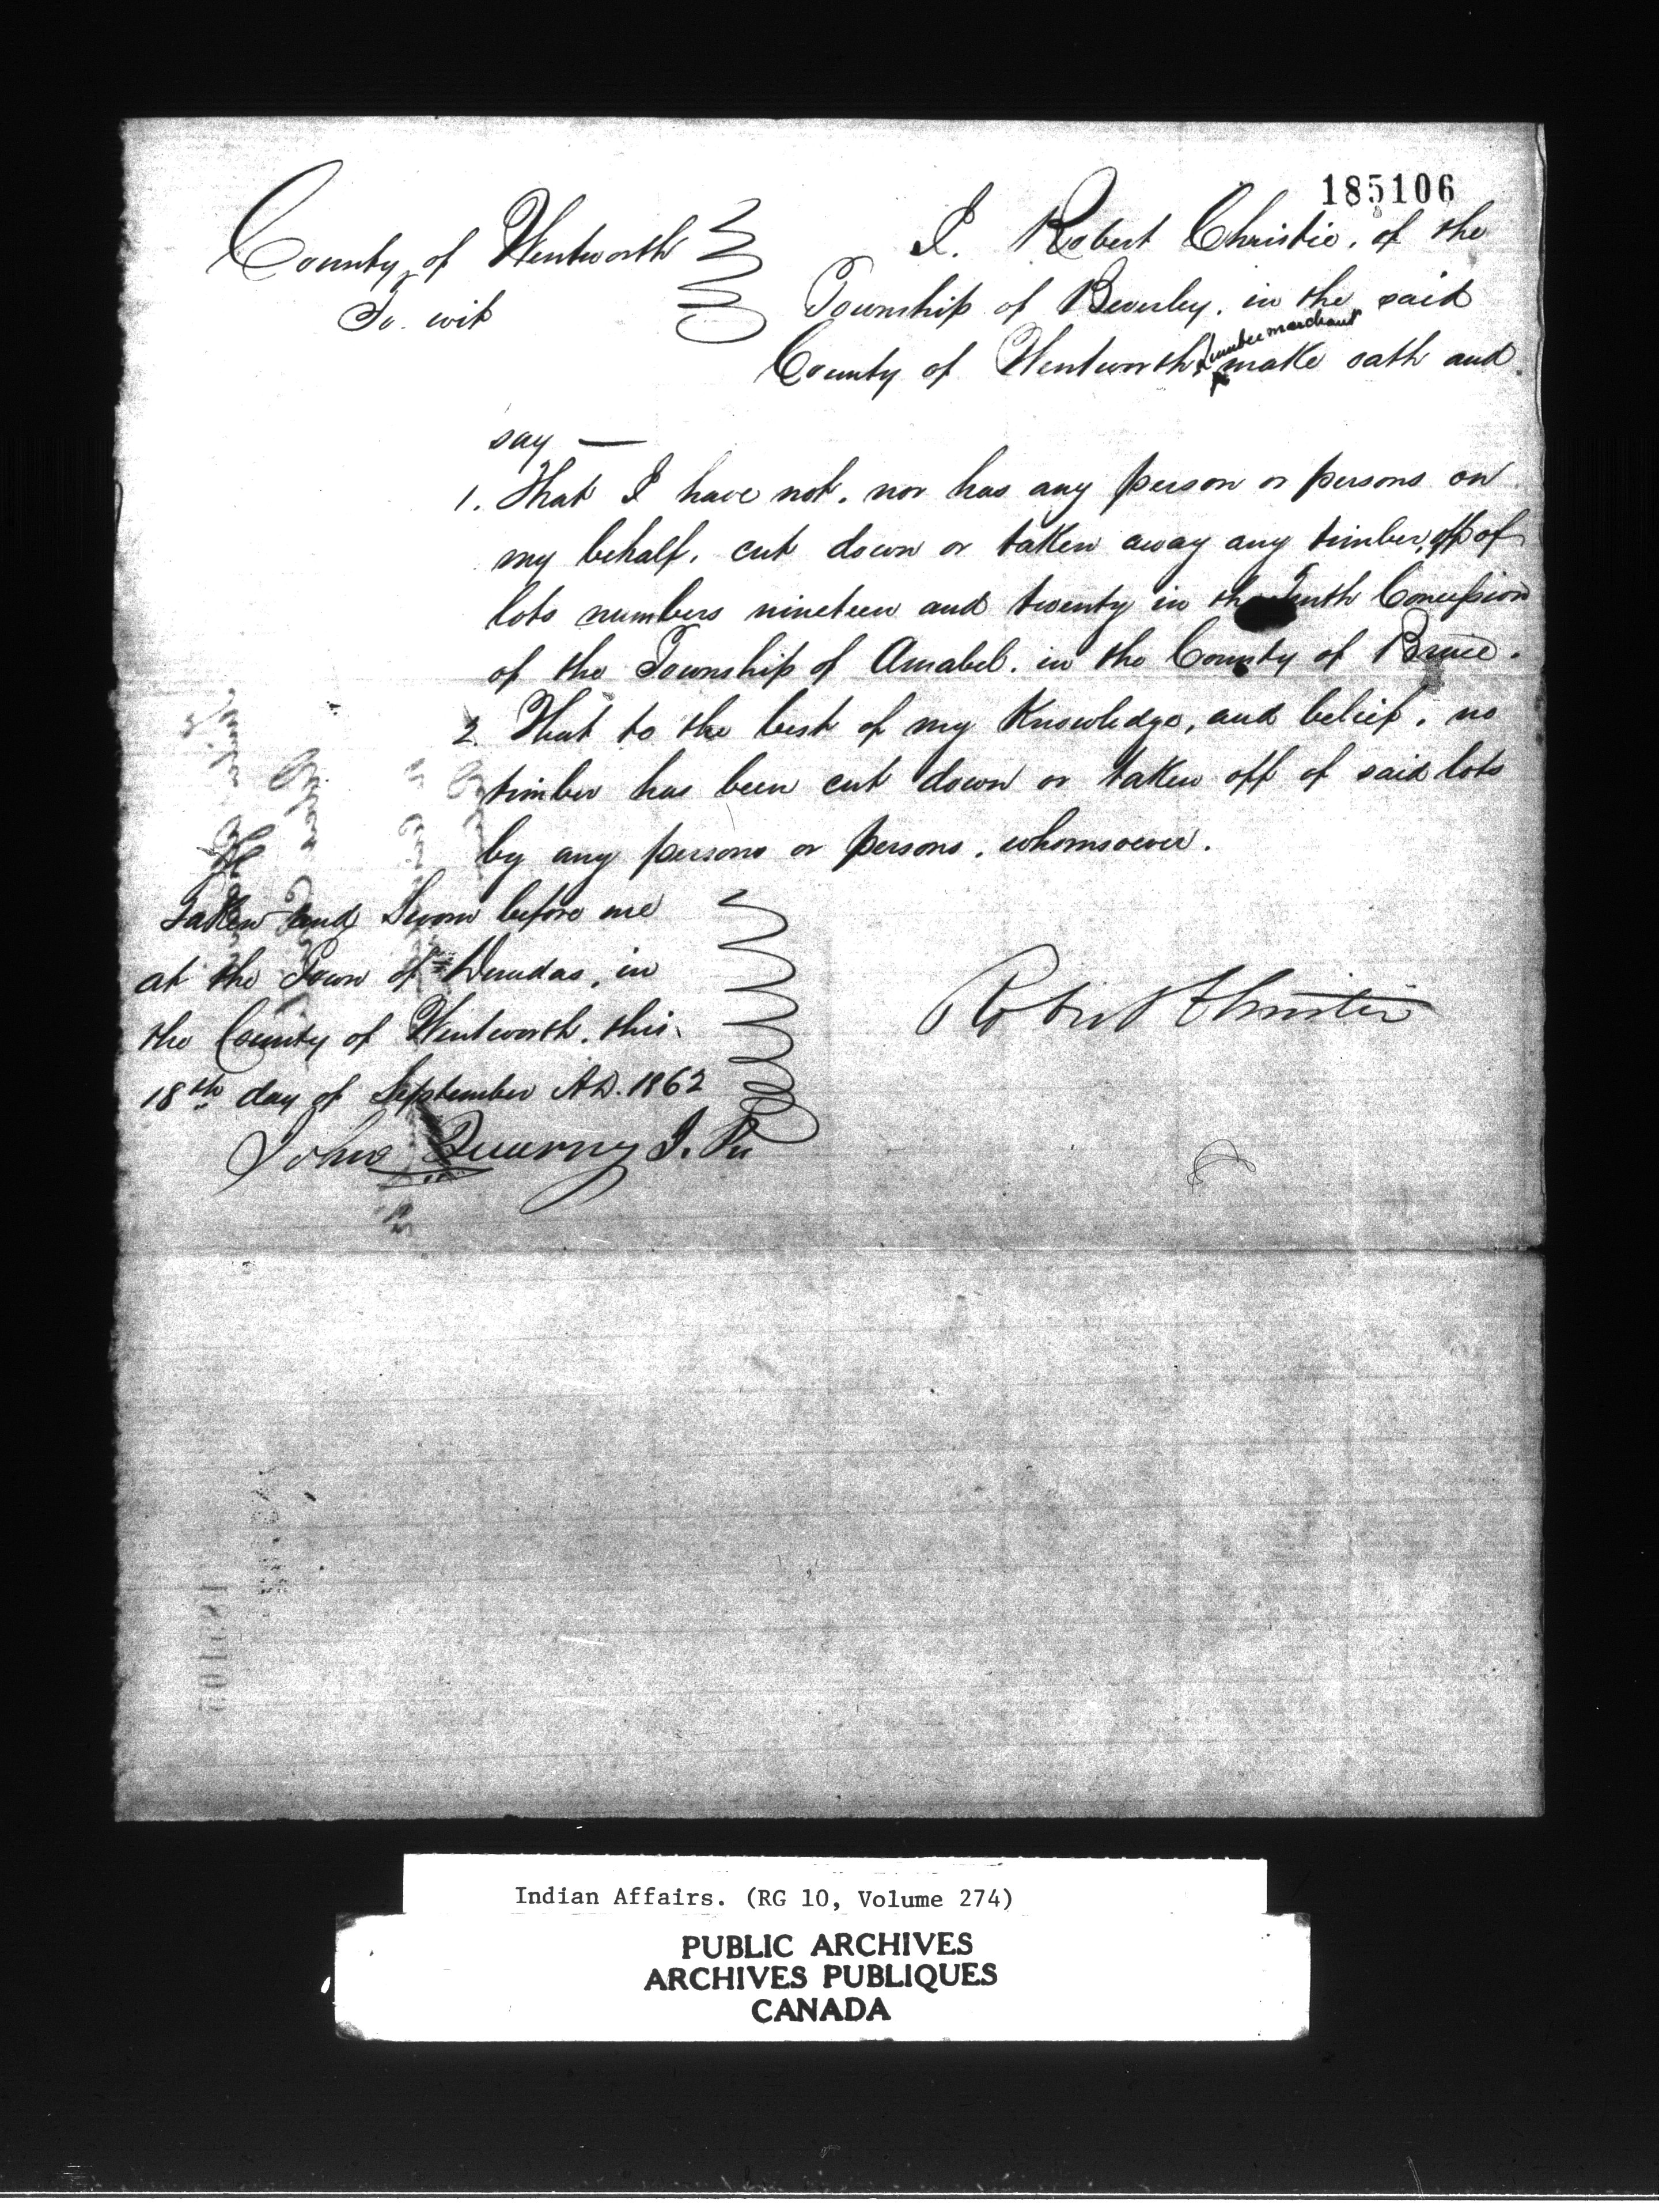 185106
County of Wentworth
To wit
I. Robert Christie, of the
Township of Beverley, in the said
County of Wentworth, Lumber merchant make oath and
say —
1. That I have not, nor has any person or persons on
my behalf, cut down or taken away any timber, off of
lots numbers nineteen and twenty in the Tenth Concession
of the Township of Amabel, in the County of Bruce.
2. That to the best of my Knowledge, and belief, no
timber has been cut down or taken off of said lots
by any persons or persons, whomsoever.
Taken and Sworn before me
at the Town of Dundas, in
the County of Wentworth, this
18th day of September A.D. 1862
Robert Christie
John
Indian Affairs. (RG 10, Volume 274)
PUBLIC ARCHIVES
ARCHIVES PUBLIQUES
CANADA